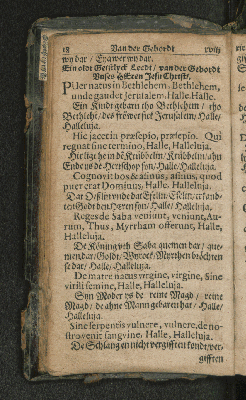 18 Van der Gebordt xviij
wydar / Eya wer wy dar.
Ein oldt Geistlyck Leedt / van der Gebordt
Vnses HERen Jesu Christi,
Puer natus in Bethlehem, Bethlehem,
unde gaudet Jerusalem, Halle, Halle.
Ein Kindt gebarn tho Bethlehem / tho
Bethlehē / des fröwet sick Jerusalem / Halle /
Halleluja.
Hic jacet in præsepio, præsepio. Qui
regnat sine termino, Halle, Halleluja.
Hir licht he in dē Krübbelin / Krübbelin / ahn
Ende ys de Herrschop syn / Halle / Halleluja.
Cognovit bos & asinus, asinus, quod
puer erat Dominus, Halle, Halleluja.
Dat Oeßlin vnde dat Eselin / Eselin / erkand-
ten Godt den Heren syn / Halle / Halleluja.
Reges de Saba veniunt, veniunt, Au-
rum, Thus, Myrrham offerunt, Halle,
Halleluja.
De Köning vth Saba quemen dar / que-
men dar / Goldt / Wyrock / Myrrhen brochten
se dar / Halle / Halleluja.
De matre natus virgine, virgine, Sine
virili semine, Halle, Halleluja.
Syn Moder ys de reine Magd / reine
Magd / de ahne Mann gebaren hat / Halle /
Halleluja.
Sine serpentis vulnere, vulnere, de no-
stro venit sanguine, Halle, Halleluja.
De Schlang en nicht vergifften kond / ver-
gifften